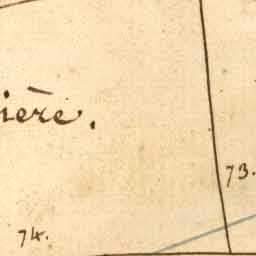 ière.
73.
74.